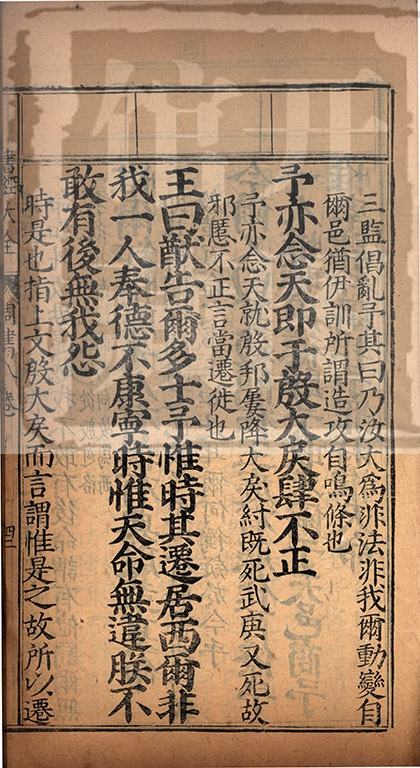 三監倡亂予其曰乃汝大為非法非我爾動變自
爾邑猶伊訓所謂造攻自鳴條也
予亦念天即于殷大戾肆不正
予亦念天就殷邦屢降大戾紂既死武庚又死故
邪慝不正言當遷徙也
王曰猷告爾多士予惟時其遷居西爾非
我一人奉德不康寧時惟天命無違朕不
敢有後無我怨
時是也指上文殷大戾而言謂惟是之故所以遷
書經大全 周書八卷 四二